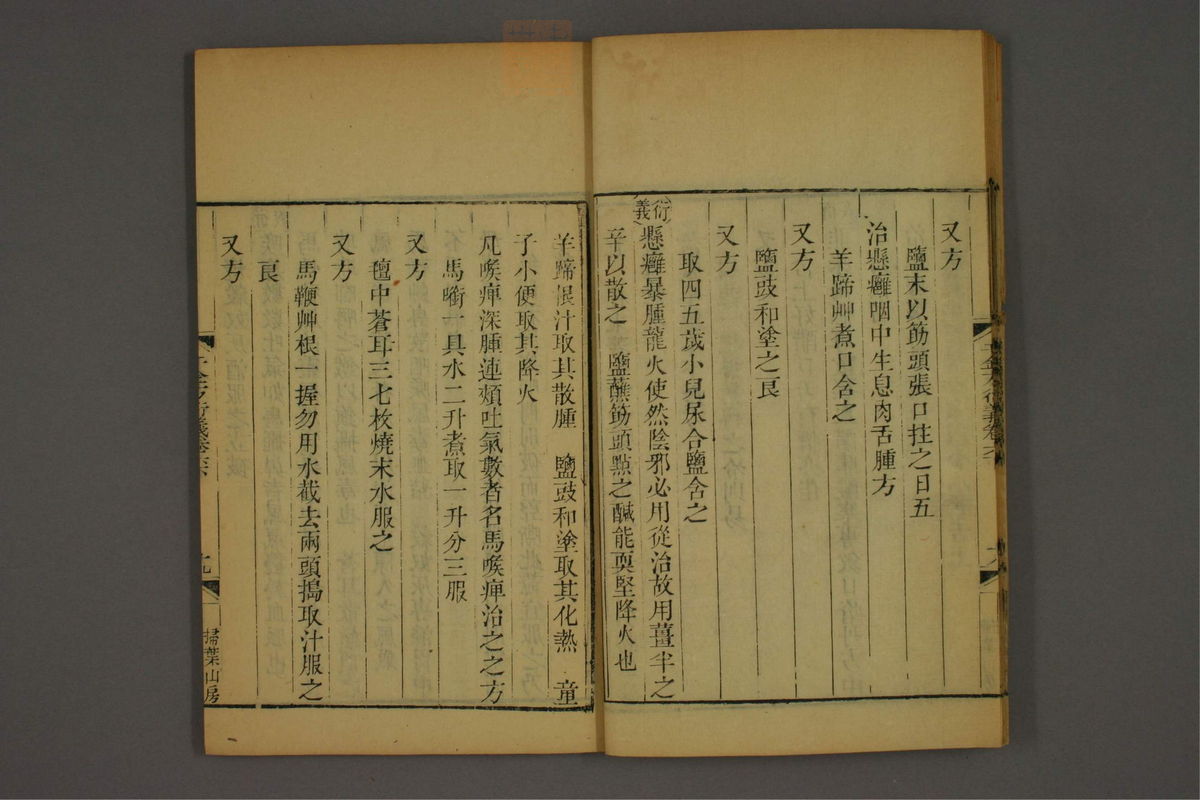 又方
鹽末以筯頭張口拄之日五
治懸癰咽中生息肉舌腫方
羊蹄艸煮口含之
又方
鹽豉和塗之良
又方
取四五歲小兒尿合鹽含之
衍義
懸癰暴腫龍火使然陰邪必用從治故用薑半之
辛以散之 鹽蘸筯頭點之鹹能耎堅降火也
羊蹄根汁取其散腫 鹽豉和塗取其化熱 童
子小便取其降火
凡喉痺深腫連頰吐氣數者名馬喉痺治之之方
馬銜一具水二升煮取一升分三服
又方
氊中蒼耳三七枚燒末水服之
又方
馬鞭艸根一握勿用水截去兩頭搗取汁服之
良
又方
掃葉山房